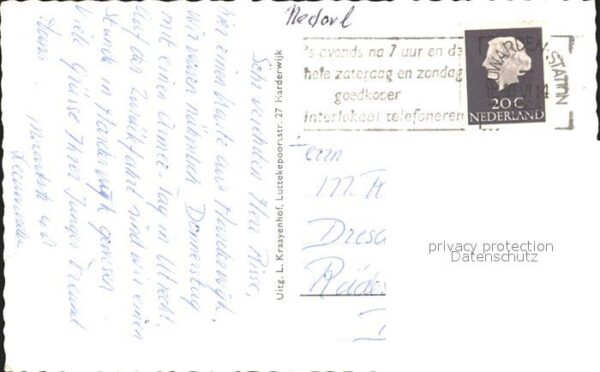 Nederl
's avonds na 7 uur en de
hele zaterdag en zondag
goedkoper
interlokaal telefoneren
LEEUWARDEN-STATION
20 C
NEDERLAND
Sehr verehrter Herr
hier einen Karte aus Harderwijk.
Wir waren nähmlich Donnerstag
mit einen Amice-Tag in Utrecht.
Auf der Zurückfahrt sind wir einen
Stunde in Harderwijk gewesen
Viele Grüsse Ihrer junger Freund
Hans
Leeuwarden
Uitg. L. Kraayenhof, Luttekepoortstr. 27 Harderwijk
Herrn
M.
Dresd
privacy protection
Datenschutz